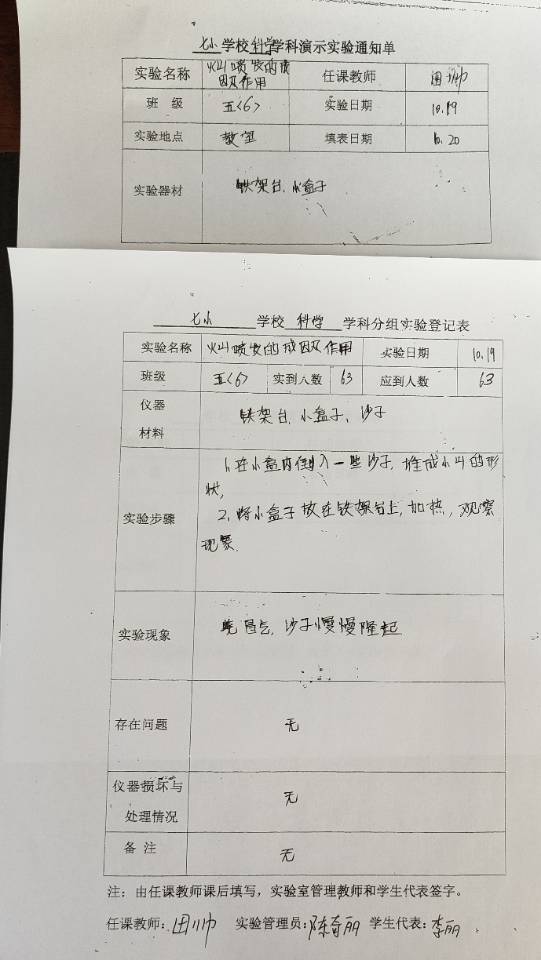 七小学校科学学科演示实验通知单
实验名称 火山喷发的成因及作用 任课教师 田帅
班 级 五<6> 实验日期 10.19
实验地点 教室 填表日期 10.20
实验器材 铁架台、小盒子
七小 学校 科学 学科分组实验登记表
实验名称 火山喷发的成因及作用 实验日期 10.19
班级 五<6> 实到人数 63 应到人数 63
仪器材料 铁架台、小盒子、沙子
实验步骤 1、在小盒内倒入一些沙子,堆成小山的形
状,
2、将小盒子放在铁架台上,加热,观察
现象.
实验现象 沙子慢慢隆起
存在问题 无
仪器损坏与处理情况 无
备 注 无
注:由任课教师课后填写,实验室管理教师和学生代表签字。
任课教师:田帅 实验管理员:陈奇丽 学生代表:李丽